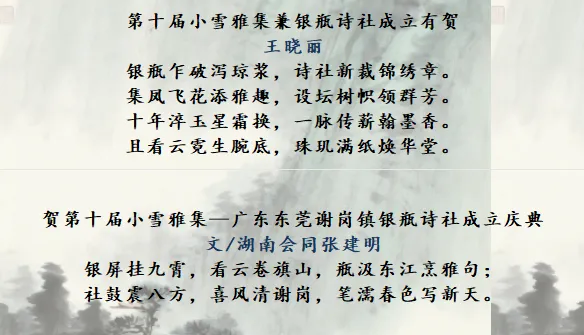 第十届小雪雅集兼银瓶诗社成立有贺
王晓丽
银瓶乍破泻琼浆，诗社新裁锦绣章。
集凤飞花添雅趣，设坛树帜领群芳。
十年淬玉星霜换，一脉传薪翰墨香。
且看云霓生腕底，珠玑满纸焕华堂。
贺第十届小雪雅集—广东东莞谢岗镇银瓶诗社成立庆典
文/湖南会同张建明
银屏挂九霄，看云卷旗山，瓶汲东江烹雅句；
社鼓震八方，喜风清谢岗，笔濡春色写新天。